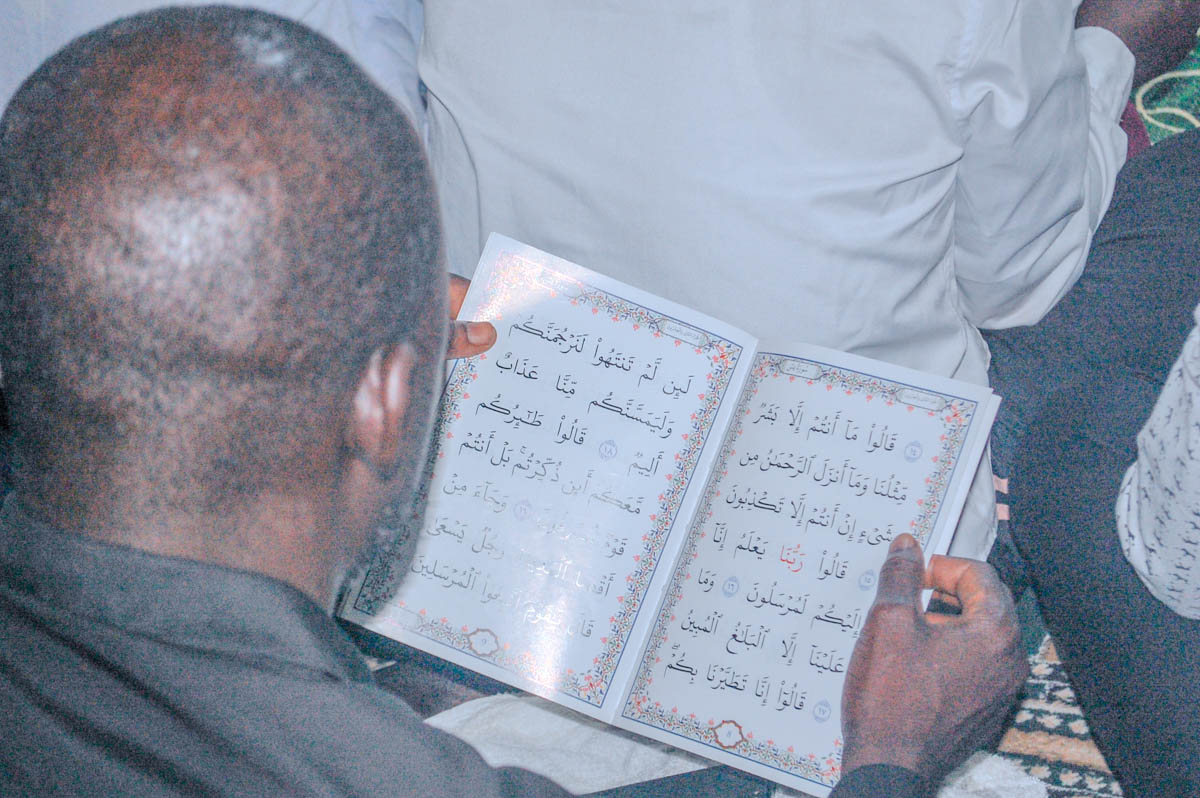 سورة يس
قَالُوا۟ مَآ أَنتُمْ إِلَّا بَشَرٌ
مِّثْلُنَا وَمَآ أَنزَلَ ٱلرَّحْمَٰنُ مِن
شَىْءٍ إِنْ أَنتُمْ إِلَّا تَكْذِبُونَ
١٥ قَالُوا۟ رَبُّنَا يَعْلَمُ إِنَّآ
إِلَيْكُمْ لَمُرْسَلُونَ ١٦ وَمَا
عَلَيْنَآ إِلَّا ٱلْبَلَٰغُ ٱلْمُبِينُ
١٧ قَالُوٓا۟ إِنَّا تَطَيَّرْنَا بِكُمْ ۖ
لَئِن لَّمْ تَنتَهُوا۟ لَنَرْجُمَنَّكُمْ
وَلَيَمَسَّنَّكُم مِّنَّا عَذَابٌ
أَلِيمٌ ١٨ قَالُوا۟ طَٰٓئِرُكُم
مَّعَكُمْ ۚ أَئِن ذُكِّرْتُم ۚ بَلْ أَنتُمْ
قَوْمٌ ١٩ وَجَآءَ مِنْ
رَجُلٌ يَسْعَىٰ
ٱلْمُرْسَلِينَ